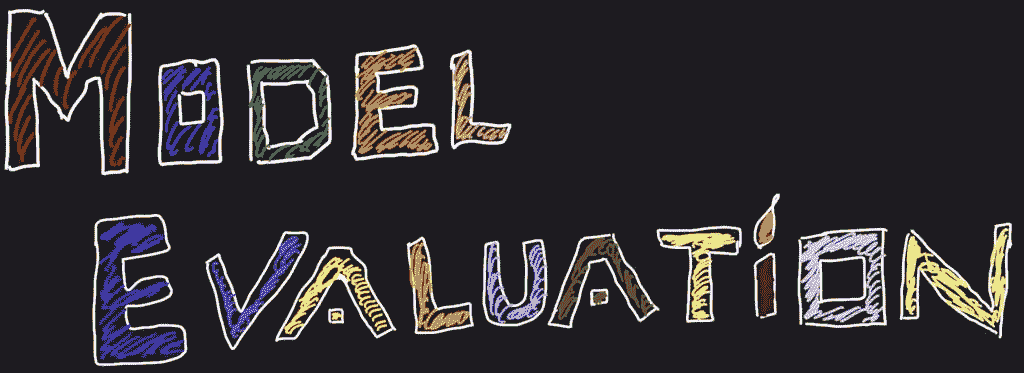 MODEL
EVALUATiON